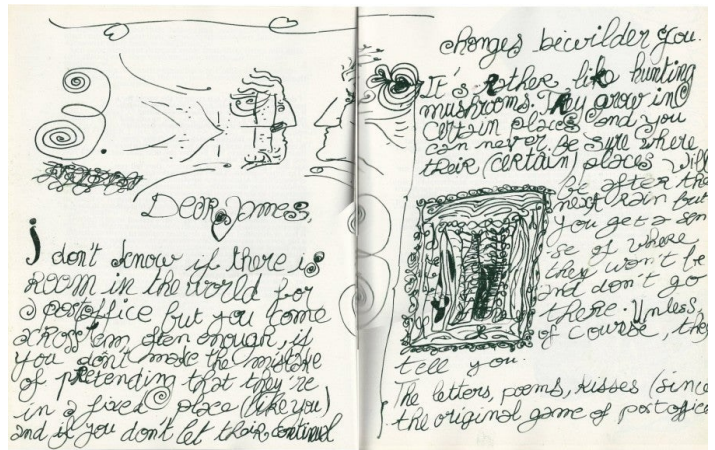 Dear James,
I don't know if there is
room in the world for
a postoffice but you come
across 'em often enough, if
you don't make the mistake
of pretending that they're
in a fixed place (like you)
and if you don't let their continual
changes bewilder you.
It's rather like hunting
mushrooms. They grow in
certain places and you
can never be sure where
their (certain) places will
be after the
next rain but
you get a sen
-se of where
they won't be
and don't go
there. Unless,
of course, they
tell you.
The letters, poems, kisses (since
the original game of postoffice